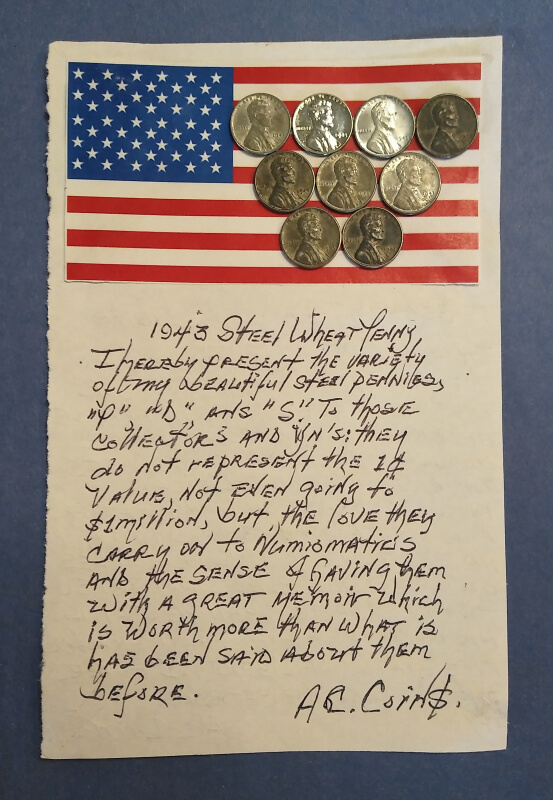 1943 Steel Wheat Penny
I hereby present the variety
of my beautiful steel pennies,
"P" "D" ans "S". To those
collectors and YN's: they
do not represent the 1¢
value, not even going to
$1million, but, the love they
carry on to Numiomatics
and the sense of having them
with a great memoir which
is worth more than what is
has been said about them
before.
A.C. Coin$.